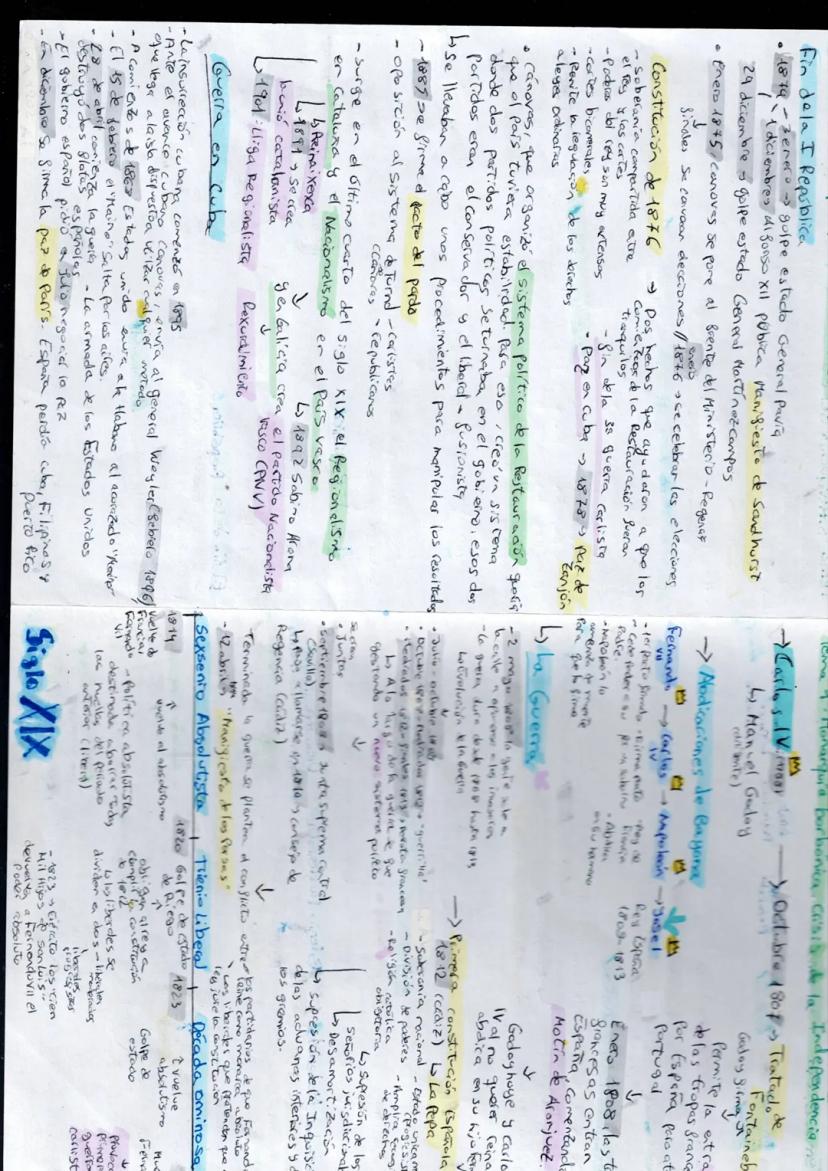 Fin de la I República
• 1874 → 3 enero → golpe estado General Pavía
1 diciembre Alfonso XII publica Manifiesto de Sandhurst
29 diciembre → golpe estado General Martínez Campos
• enero 1875, Canovas se pone al frente del Ministerio-Regencia
finales se convocan elecciones // enero 1876 → se celebran las elecciones
Constitución de 1876
- Soberanía compartida entre
el rey y las cortes
- Podres del rey son muy extensos
- Cortes bicamerales
- Remite la regulación de los derechos
a leyes ordinarias
→ Dos hechos que ayudaron a que los
comienzos de la Restauración fueran
tranquilos
- fin de la 3ª guerra Carlista
- Paz en Cuba → 1878 → Paz de
Zanjón
• Cánovas, que organizó el sistema político de la Restauración quería
que el país tuviera estabilidad. Para eso, creó un sistema
donde dos partidos políticos se turnaba en el gobierno, esos dos
partidos eran el conservador y el liberal-fusionista
↳ Se llevaban a cabo unos procedimientos para manipular los resultados
- 1885 se firma el pacto del pardo
- oposición al sistema de turno - carlistas
- republicanos
- Surge en el último cuarto del siglo XIX el Regionalismo
en Cataluña y el Nacionalismo en el País Vasco
↳ Reinaixenxa
↳ 1891 → se crea
la unió catalanista
↳ 1901: Lliga Regionalista
y en Galicia
↓
Rexurdimento
↳ 1892 Sabino Arana
crea el partido Nacionalista
Vasco (PNV)
Guerra en Cuba
- La insurrección cubana comenzó en 1895
- Ante el avance cubano Canovas, envía al general Weyler (febrero 1896)
que llega a la isla dispuesto a utilizar cualquier metodo
- A comienzos de 1898 Estados unido envía a la Habana al acorazado "Maine"
- El 15 de febrero el "Maine" salta por los aires.
- 28 de abril comienza la guerra - La armada de los Estados Unidos
destruyó dos flotas españolas
- El gobierno español pidió en Julio negociar la paz
- En diciembre se firma la paz de París. España perdía Cuba, Filipinas y
Puerto Rico
Tema 9. Monarquía Borbónica. Crisis de la Independencia
→ Carlos IV
↳ Manuel Godoy
→ Octubre 1807 → Tratado de
Godoy firma
Permite la
de las tropas
por España para
Portugal
→ Abdicaciones de Bayona
Fernando VII → Carlos IV → Napoleón → José I
Rey España
1808 - 1813
Enero 1808, las
francesas entran
España comenzando
Motín de Aranjuez
Godoy huye y Carlos
IV al no querer
abdica en su hijo
↳ La Guerra
- 2 mayo 1808 la gente sale a
la calle a oponerse a los invasores
- La guerra dura desde 1808 hasta 1813
↳ Evolución de la Guerra
↳ A lo largo de la guerra se fue
gestando un nuevo sistema político
→ Primera constitución Española
1812 (Cádiz) ↳ La Pepa
- Soberanía nacional
- División de poderes
- Religión católica
obligatoria
- Amplia
de derechos
• Juntas
• Septiembre 1808 → Junta suprema central
(Sevilla)
↳ pasa a llamarse en 1810 → consejo de
Regencia (Cádiz)
↳ Supresión de los
señoríos jurisdiccional
↳ Desamortización
↳ Supresión de la Inquisición
de las aduanas interiores y
los gremios.
Terminada la guerra se plantea el conflicto entre → los partidarios de que Fernando
reine como monarca absoluto
↳ los liberales que pretenden que
jure la constitución
- 12 abril "Manifiesto de los Persas"
Sexenio Absolutista | Trienio Liberal | Década ominosa
1814
Vuelve de
Francia
Fernando
VII
Vuelta al absolutismo
- Política absolutista
destinada a borrar todas
las huellas del periodo
anterior (liberal)
1820 Golpe de estado
de Riego
obliga al rey a
cumplir la constitución
de 1812
↳ los liberales se
dividen en dos
- liberales
moderados
- liberales
progresistas
- 1823 → Ejército los Cien
Mil Hijos de San Luis
devuelven a Fernando VII el
poder absoluto
1823
Golpe de
estado
↑ vuelve
absolutismo
Siglo XIX